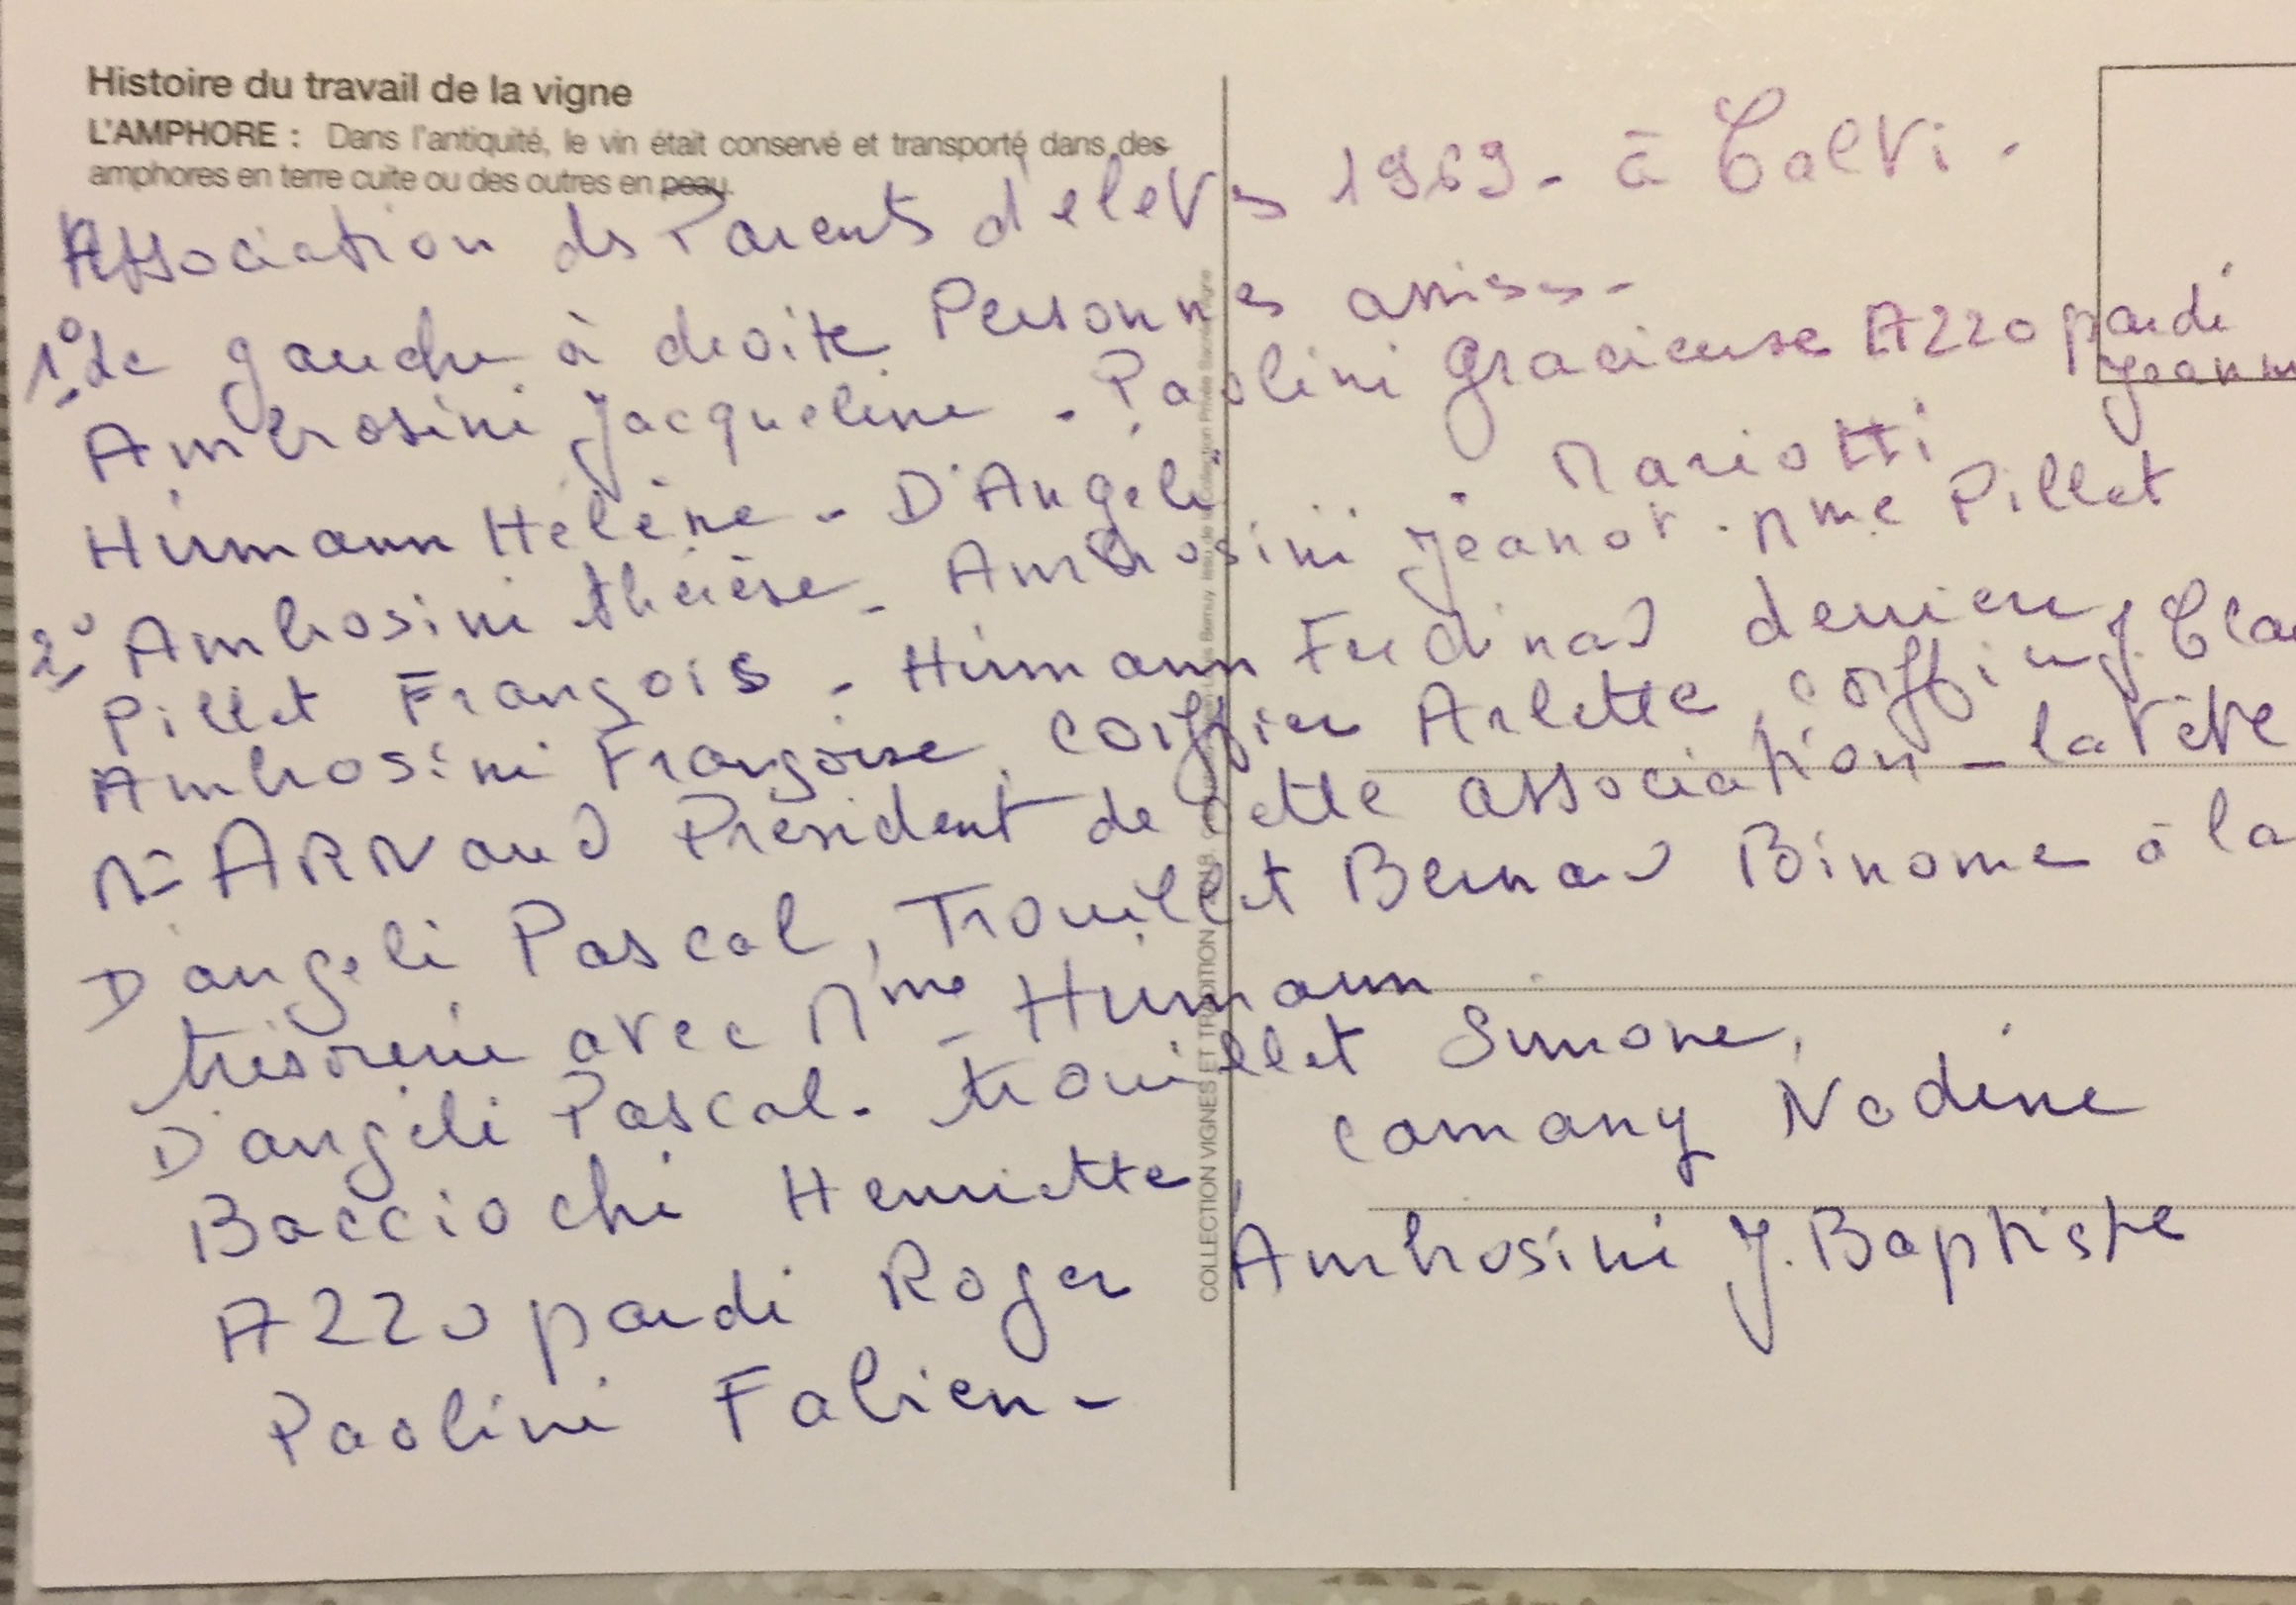 Histoire du travail de la vigne
L'AMPHORE : Dans l'antiquité, le vin était conservé et transporté dans des
amphores en terre cuite ou des outres en peau.
Association ds Parents d'elevs 1969 - à Calvi -
1° de gauche à droite Personnes assises -
Ambrosini Jacqueline - Paolini gracieuse Azzopardi
Jeann
Hirmann Hélène - D'Angeli - Mariotti
2° Ambrosini thérèse - Ambrosini Jeanot . Mme Pillet
Pillet François - Hirmann Ferdinad derriere J. Cla
Ambrosini Françoise, Coiffier Arlette, coiffi
Mr ARNaud Président de cette association - la tête
D'angeli Pascal, Trouillet Bernard Binome à la
trésorerie avec Mme Humann
D'angeli Pascal - trouillet Simone,
Bacciochi Henriette, Comany Nadine
Azzopardi Roger Ambrosini J. Baptiste
Paolini Fabien -
COLLECTION VIGNES ET TRADITION